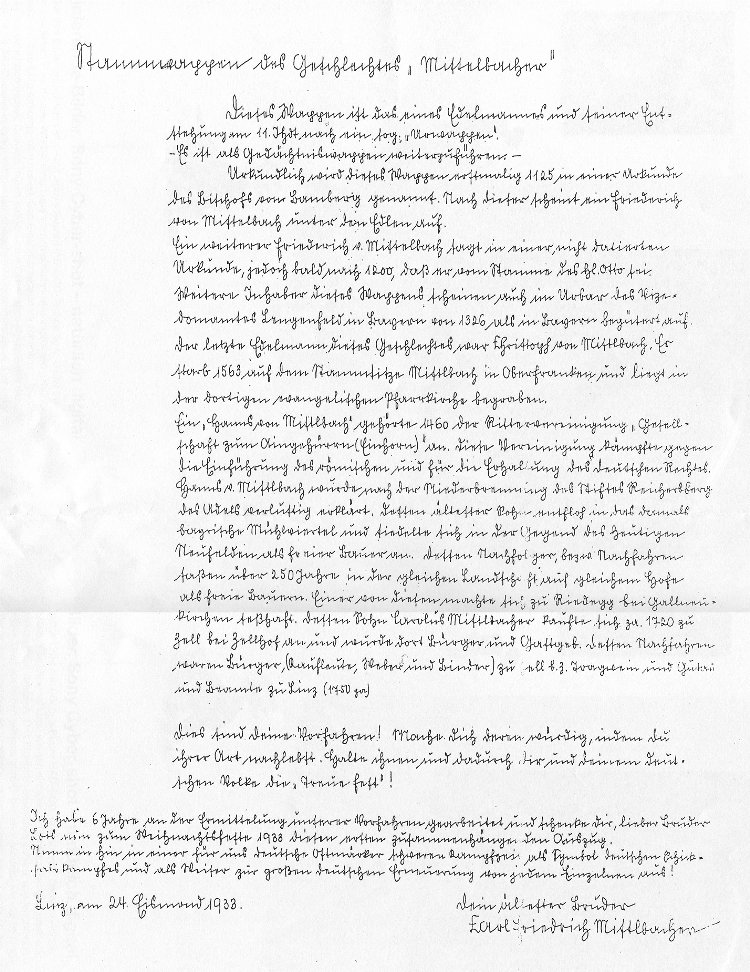 Stammwappen des Geschlechtes „Mittelbacher“
Dieses Wappen ist das eines Edelmannes und seiner Ent-
stehung im 11. Jhdt. nach ein sog. „Urwappen“.
- Es ist als Gedächtniswappen weiterzuführen. -
Urkundlich wird dieses Wappen erstmalig 1125 in einer Urkunde
des Bischofs von Bamberg genannt. Nach dieser scheint ein Friederich
von Mittelbach unter den Edlen auf.
Ein weiterer Friederich v. Mittelbach sagt in einer, nicht datierten
Urkunde, jedoch bald nach 1200, daß er vom Stamme des hl. Otto sei.
Weitere Inhaber dieses Wappens scheinen auch im Urbar des Vize-
domamtes Lengenfeld in Bayern von 1326, als in Bayern begütert auf.
Der letzte Edelmann dieses Geschlechtes war Christoph von Mittlbach. Er
starb 1563 auf dem Stammsitze Mittlbach in Oberfranken und liegt in
der dortigen evangelischen Pfarrkirche begraben.
Ein „Hanns von Mittlbach“ gehörte 1460 der Rittervereinigung „Gesell-
schaft zum Aingehürn (Einhorn)“ an. Diese Vereinigung kämpfte gegen
die Einführung des römischen und für die Erhaltung des deutschen Rechtes.
Hanns v. Mittlbach wurde nach der Niederbrennung des Stiftes Reichersberg
des Adels verlustig erklärt. Dessen ältester Sohn entfloh in das damals
bayrische Mühlviertel und siedelte sich in der Gegend des heutigen
Neufelden als freier Bauer an. Dessen Nachfolger, bezw. Nachfahren
saßen über 250 Jahre in der gleichen Landschaft auf gleichem Hofe
als freie Bauern. Einer von diesen machte sich zu Riedegg bei Gallneu-
kirchen seßhaft. Dessen Sohn Carolus Mittlbacher kaufte sich za. 1720 zu
Zell bei Zellhof an und wurde dort Bürger und Gastgeb. Dessen Nachfahren
waren Bürger, (Kaufleute, Weber und Binder) zu Zell b. Z. Tragwein und Gutau
und Beamte zu Linz (1750 za)
Dies sind deine Vorfahren! Mache dich deren würdig, indem du
ihrer Art nachlebst. Halte ihnen und dadurch dir und deinem deut-
schen Volke die „Treue fest“!
Ich habe 6 Jahre an der Ermittelung unserer Vorfahren gearbeitet und schenke dir, lieber Bruder
nun zum Weihnachtsfeste 1933 diesen ersten zusammenhängenden Auszug.
Nimm ihn hin in einer für uns deutsche Ostmärker schweren Kampfzeit als Symbol deutschen Schick-
salskampfes und als Weiser zur großen deutschen Erneuerung von jedem Einzelnen aus!
Linz, am 24. Eismond 1933.
Dein ältester Bruder
Karl Friedrich Mittlbacher